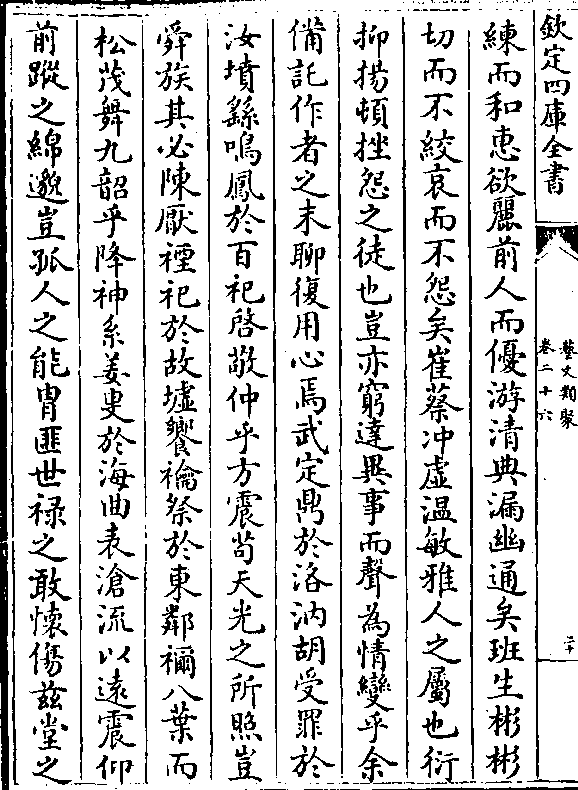 欽定四庫全書
藝文類聚
卷二十六
二十
練而和惠欲麗前人而優游清典漏幽通矣班生彬彬
切而不絞哀而不怨矣崔蔡沖虛溫敏雅人之屬也衍
抑揚頓挫怨之徒也豈亦窮達異事而聲為情變乎余
備託作者之末聊復用心焉武定鼎於洛汭胡受罪於
汝墳繇鳴鳳於百祀啓敬仲乎方震茍天光之所照豈
舜族其必陳厭禋祀於故墟饗禴祭於東鄰禰八葉而
松茂舞九韶乎降神系姜叟於海曲表滄流以遠震仰
前蹤之綿邈豈孤人之能胄匪世祿之敢懷傷茲堂之